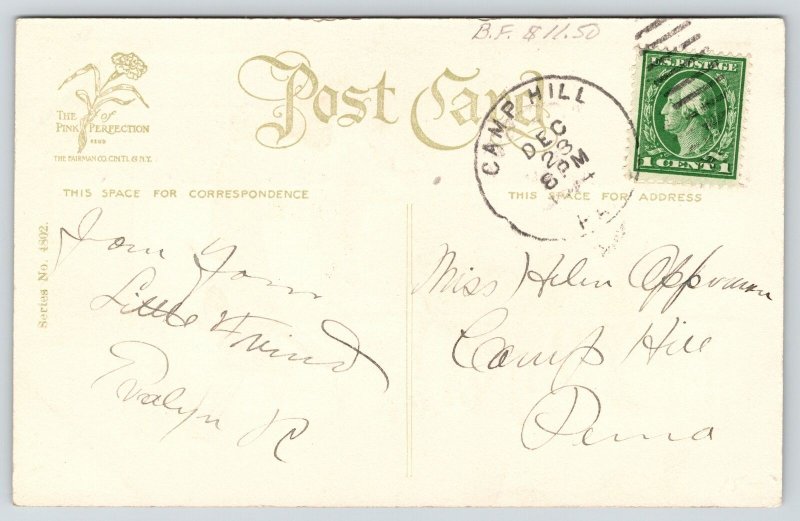 B.F. $11.50
THE PINK of PERFECTION
THE FAIRMAN CO. CNTI. & N.Y.
Post Card
CAMP HILL
DEC
23
6 PM
U.S. POSTAGE
1 CENT 1
THIS SPACE FOR CORRESPONDENCE
THIS SPACE FOR ADDRESS
Series No. 4802.
From Your
Little Friend
Evalyn R
Miss Helen Oppermann
Camp Hill
Penna